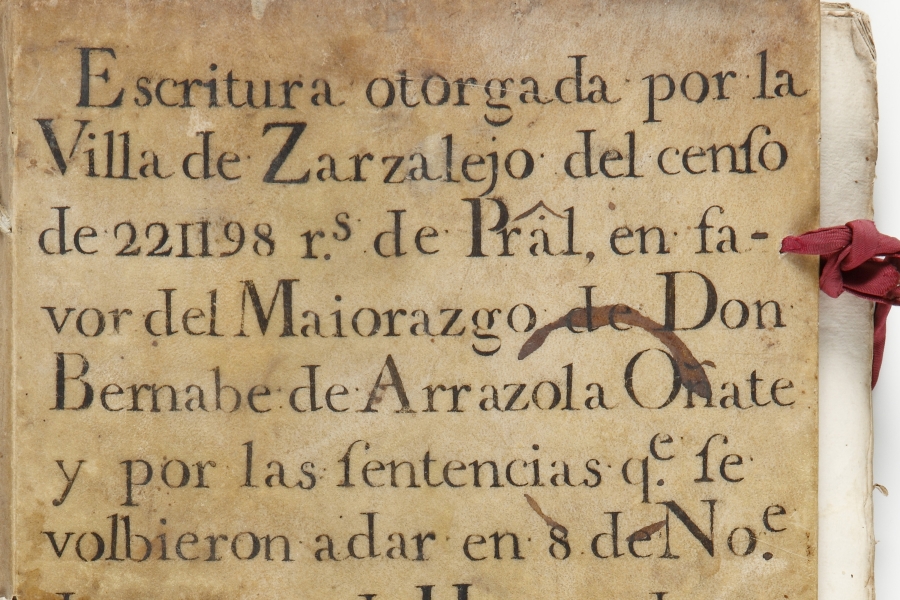 Escritura otorgada por la
Villa de Zarzalejo del cenſo
de 221198 r.s de Prâl, en fa-
vor del Maiorazgo de Don
Bernabe de Arrazola Oñate
y por las ſentencias q.e ſe
volbieron adar en 8 de No.e